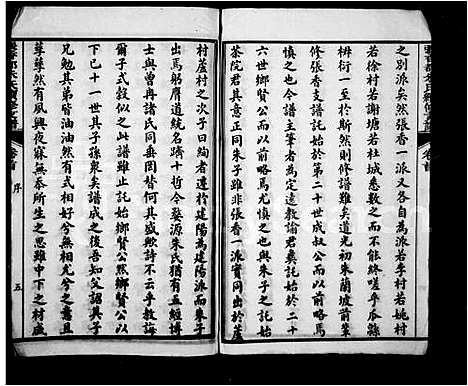 之別派矣然張香一派又各自爲派若李村若姚村
若徐村若謝塘若杜城悉數之而不能終嗟乎瓜縣
椒衍一至於斯然則張香之譜道光初朱蘭坡前輩
修張香支譜託始於第二十世成叔公而以前略焉
慎之也今譜主筆者爲定遠教諭君奠託始於二十
六世鄉賢公而以前略焉尤慎之也與朱子之託始
茶院君意同正同朱子雖非張香一派實同出於蘆
村蘆村之次子曰絢者遷於建陽爲建陽派而朱子
出焉躬膺道統名躋十哲今婺源朱氏猶有五經博
士與曾冉諸氏同典罔替何其盛歟詩不云乎教誨
爾子式穀似之此譜雖止託始鄉賢公然鄉賢公以
下已十一世其子孫衆矣譜成之後吾知父詔其子
兄勉其弟睊油油然有式相好兮無相尤兮之意且
蕚蕚然有夙興夜寐無忝所生之思雖中下之材咸
卷首
序
五